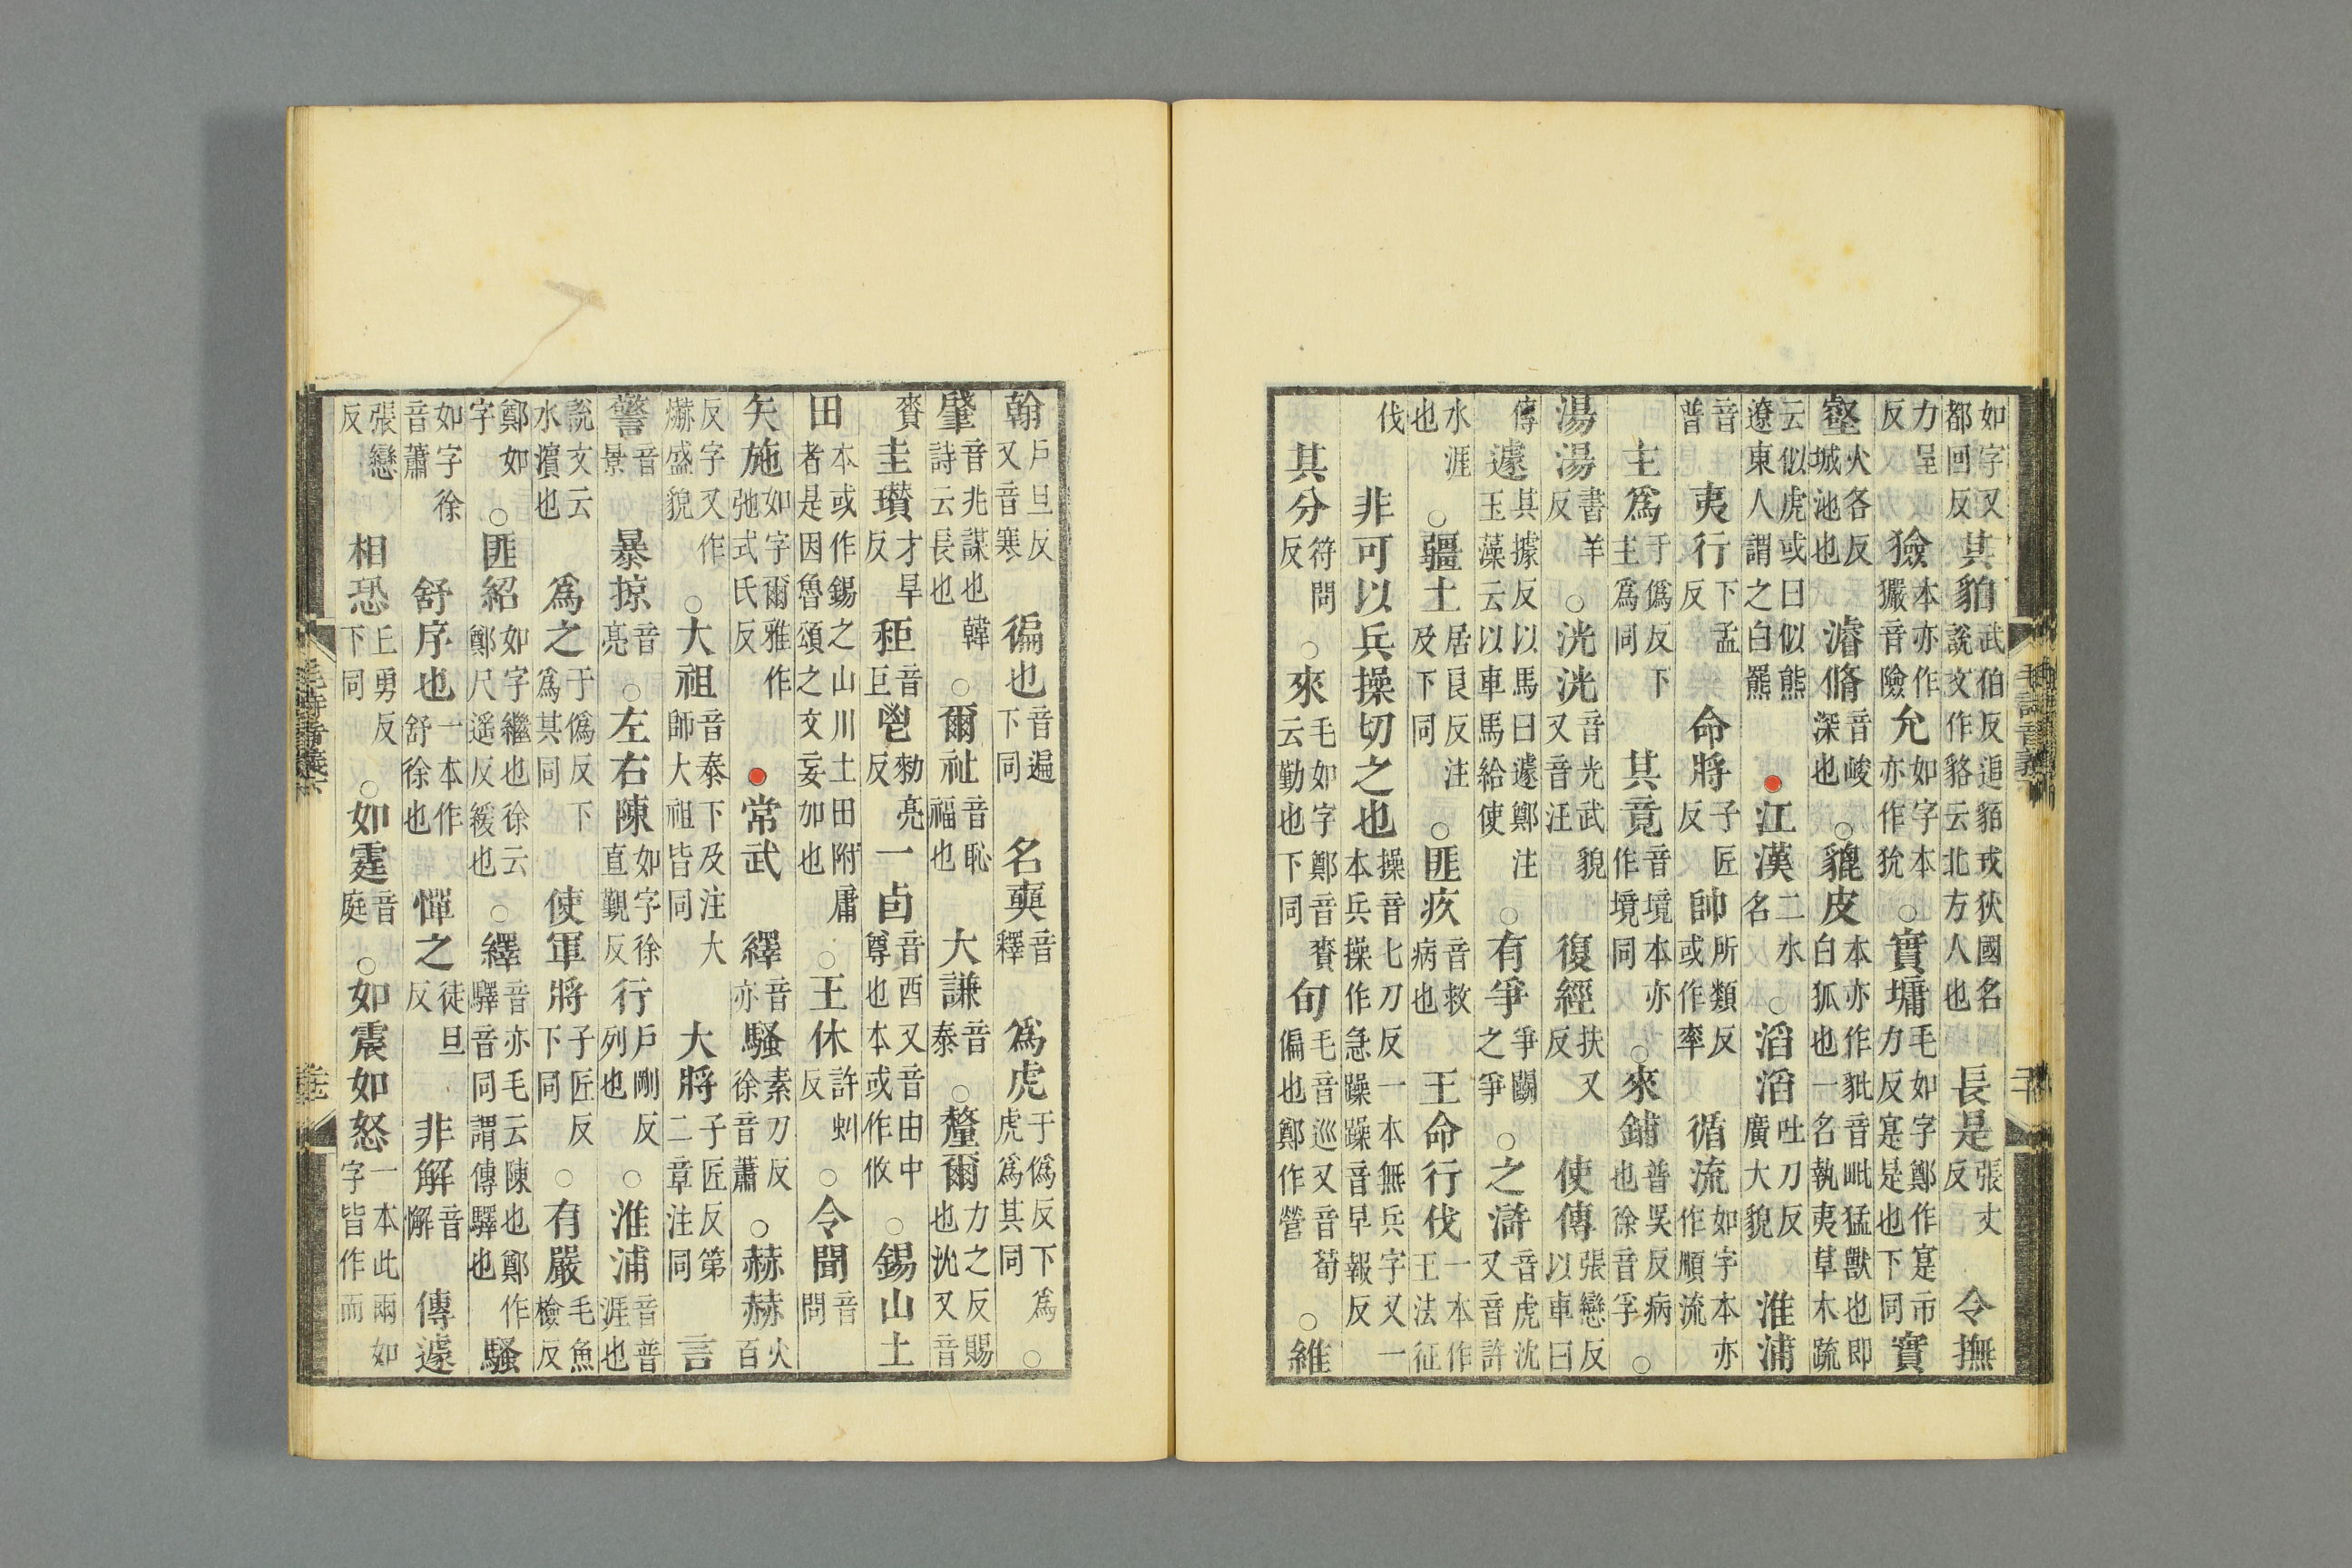 如字又都回反其貊武伯反追貊戎狄國名說文作貉云北方人也長是張丈反令撫
力呈反獫本亦作玁音險允如字本亦作狁○實墉毛如字鄭作寔市力反寔是也下同實
壑火各反城池也濬脩音峻深也○貔皮本亦作豼音毗猛獸也即白狐也一名執夷草木疏
云似虎或曰似熊遼東人謂之白羆●江漢二水名○滔滔吐刀反廣大貌淮浦
音普夷行下孟反命將子匠反帥所類反或作率循流如字本亦作順流
主爲于僞反下主爲同其竟音境本亦作境同○來鋪普吴反病也徐音孚○
湯湯書羊反○洸洸音光武貌又音汪復經扶又反使傳張戀反以車曰
傳遽其據反以馬曰遽鄭注玉藻云以車馬給使○有爭爭鬭之爭○之滸音虎沈又音許
水涯也○疆土居良反注及下同○匪疚音救病也王命行伐一本作王法征
伐非可以兵操切之也操音七刀反一本無兵字又一本兵操作急躁躁音早報反
其分符問反○來毛如字鄭音賚云勤也下同旬毛音巡又音荀徧也鄭作營○維
翰戶旦反又音寒徧也音遍下同名奭音釋爲虎于僞反下爲虎爲其同○
肇音兆謀也韓詩云長也○爾祉音恥福也大謙音泰○釐爾力之反賜也沈又音
賚圭瓚才旱反秬音巨鬯勑亮反一卣音酉又音由中尊也本或作攸○錫山土
田本或作錫之山川土田附庸者是因魯頌之文妄加也○王休許虯反○令聞音問
矢施如字爾雅作弛式氏反●常武繹音亦騷素刀反徐音蕭○赫赫火百
反字又作爀盛貌○大祖音泰下及注大師大祖皆同大將子匠反第二章注同言
警音景暴掠音亮○左右陳如字徐直覲反行戶剛反列也○淮浦音普涯也
說文云水濱也爲之于僞反下爲其同使軍將子匠反下同○有嚴毛魚檢反
鄭如字○匪紹如字繼也徐云鄭尺遥反緩也○繹音亦毛云陳也鄭作驛音同謂傳驛也騷
如字徐音蕭舒序也一本作舒徐也憚之徒旦反非解音懈傳遽
張戀反相恐丘勇反下同○如霆音庭○如震如怒一本此兩如字皆作而
毛詩音義下